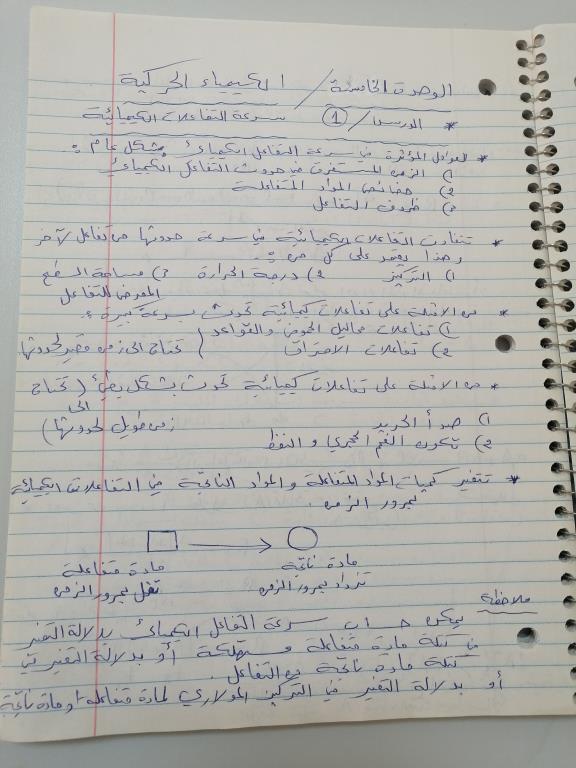 الوحدة الخامسة / الكيمياء الحركية
* الدرس / 1 سرعة التفاعلات الكيميائية
* العوامل المؤثرة في سرعة التفاعل الكيميائي بشكل عام :
1) الزمن المستغرق في حدوث التفاعل الكيميائي
2) خصائص المواد المتفاعلة
3) ظروف التفاعل
* تتفاوت التفاعلات الكيميائية في سرعة حدوثها من تفاعل لآخر
وهذا يعتمد على كل من :
1) التركيز 2) درجة الحرارة 3) مساحة السطح
المعرض للتفاعل
* من الامثلة على تفاعلات كيميائية تحدث بسرعة كبيرة :
1) تفاعلات محاليل الحموض والقواعد
2) تفاعلات الاحتراق ( تحتاج الى زمن قصير لحدوثها
* من الامثلة على تفاعلات كيميائية تحدث بشكل بطيء ( تحتاج
الى
1) صدأ الحديد زمن طويل لحدوثها )
2) تكون الفحم الحجري و النفط
* تتغير كميات المواد المتفاعلة والمواد الناتجة في التفاعلات الكيميائية
بمرور الزمن .
مادة متفاعلة مادة ناتجة
تقل بمرور الزمن تزداد بمرور الزمن
ملاحظة
يمكن حساب سرعة التفاعل الكيميائي بدلالة التغير
في كتلة مادة متفاعلة مستهلكة أو بدلالة التغير في
كتلة مادة ناتجة من التفاعل .
أو بدلالة التغير في التركيز المولاري لمادة متفاعلة او مادة ناتجة